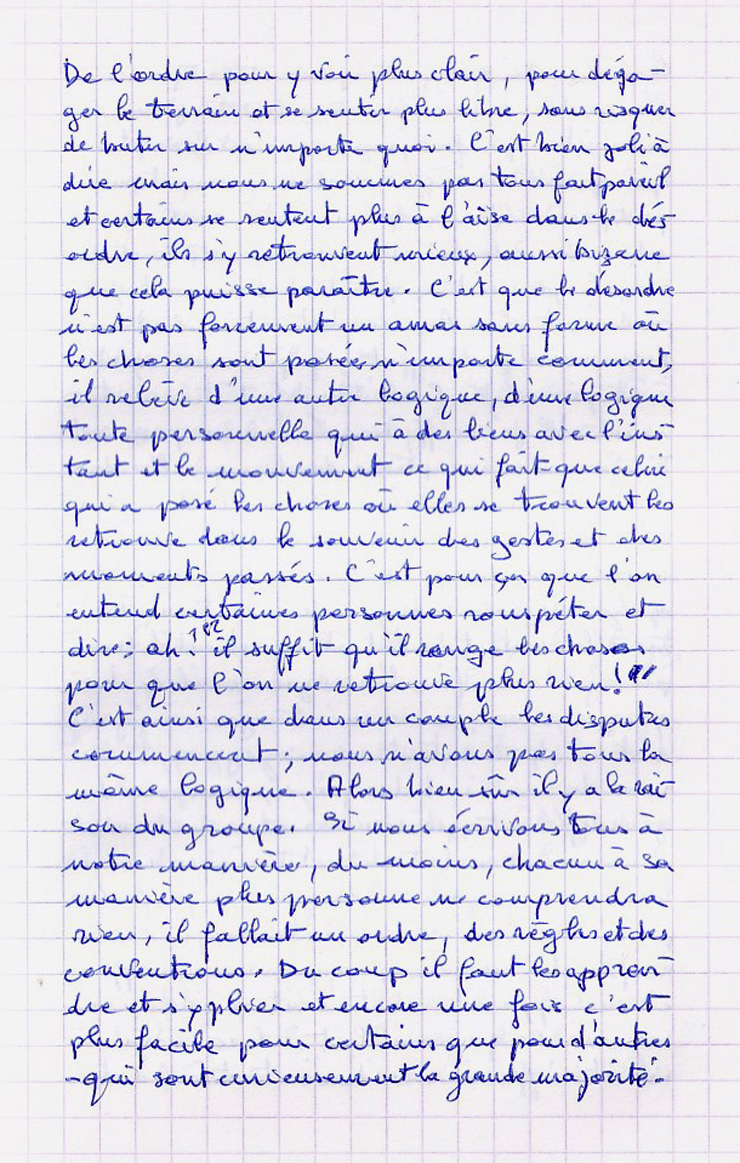 De l'ordre pour y voir plus clair, pour déga-
ger le terrain et se sentir plus libre, sans risquer
de buter sur n'importe quoi. C'est bien joli à
dire mais nous ne sommes pas tous fait pareil
et certains se sentent plus à l'aise dans le dés
ordre, ils s'y retrouvent mieux, aussi bizarre
que cela puisse paraître. C'est que le désordre
n'est pas forcément un amas sans forme où
les choses sont posées n'importe comment,
il relève d'une autre logique, d'une logique
toute personnelle qui a des liens avec l'ins
tant et le mouvement ce qui fait que celui
qui a posé les choses où elles se trouvent les
retrouve dans le souvenir des gestes et des
moments passés. C'est pour ça que l'on
entend certaines personnes rouspéter et
dire: ah! il suffit qu'il range les choses
pour que l'on ne retrouve plus rien!"
C'est ainsi que dans un couple les disputes
commencent; nous n'avons pas tous la
même logique. Alors bien sûr il y a la rai
son du groupe. Si nous écrivons tous à
notre manière, du moins, chacun à sa
manière plus personne ne comprendra
rien, il fallait un ordre, des règles et des
conventions. Du coup il faut les appren
dre et s'y plier et encore une fois c'est
plus facile pour certains que pour d'autres
-qui sont curieusement la grande majorité-.